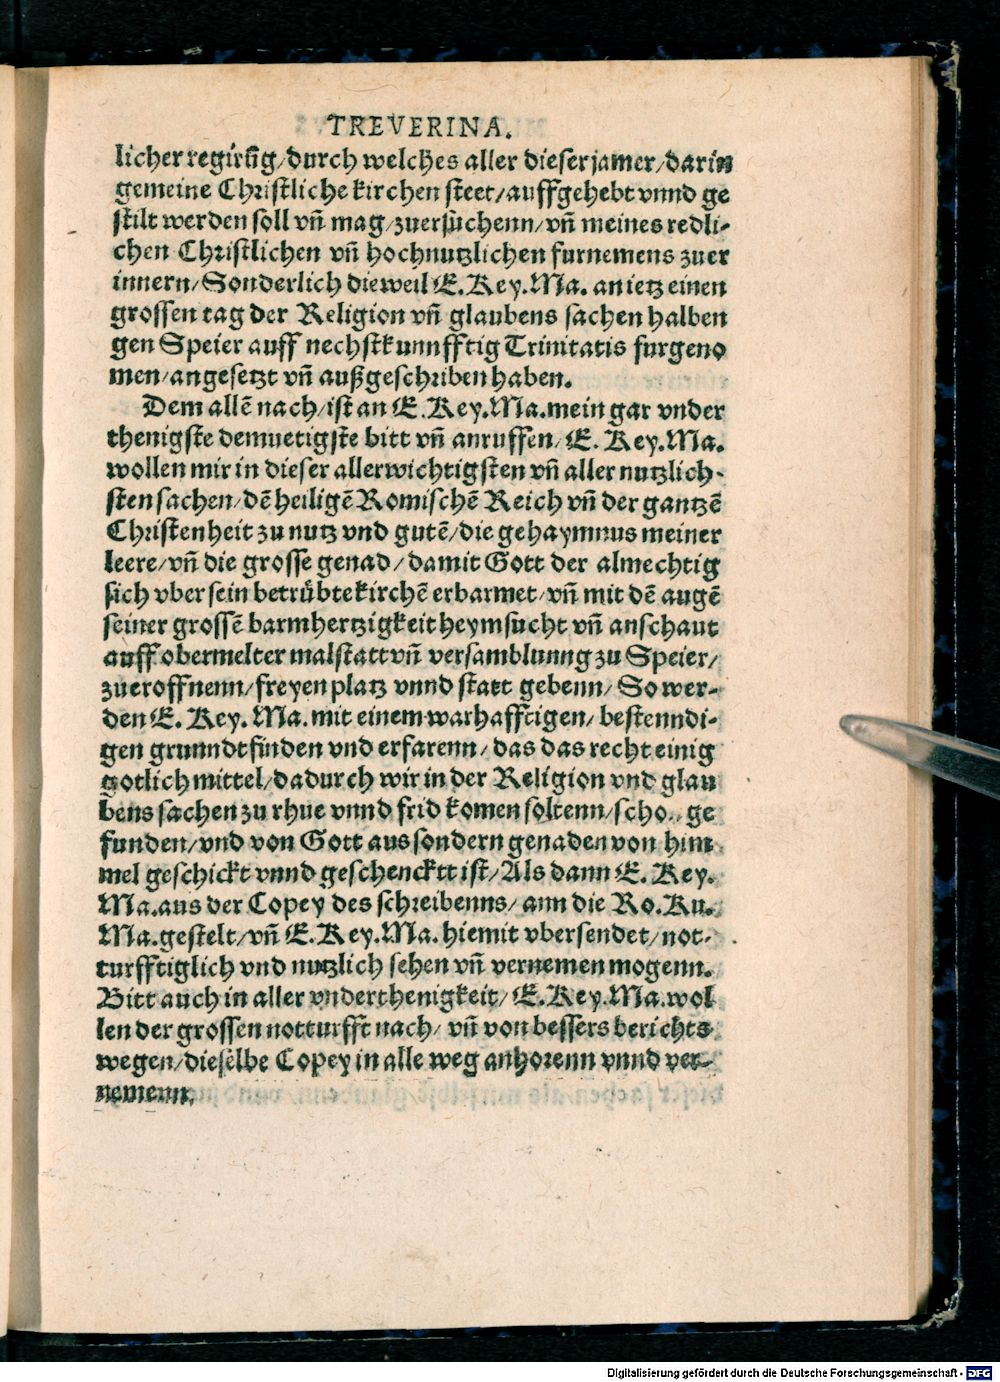 TREVERINA.
licher regirūg/durch welches aller dieser jamer/darin
gemeine Christliche kirchen steet/auffgehebt vnnd ge
stilt werden soll vñ mag/zuersůchenn/vñ meines redli-
chen Christlichen vñ hochnutzlichen furnemens zuer
innern/Sonderlich dieweil E.Key.Ma. an ietz einen
grossen tag der Religion vñ glaubens sachen halben
gen Speier auff nechstkunnfftig Trinitatis furgeno
men/angesetzt vñ außgeschriben haben.
Dem allē nach/ist an E.Key.Ma.mein gar vnder
thenigste demuetigste bitt vñ anruffen/E. Key.Ma.
wollen mir in dieser allerwichtigsten vñ aller nutzlich-
sten sachen/dē heiligē Romischē Reich vñ der gantzē
Christenheit zu nutz vnd gutē/die gehaymnus meiner
leere/vñ die grosse genad/damit Gott der almechtig
sich vber sein betrůbte kirchē erbarmet/vñ mit dē augē
seiner grossē barmhertzigkeit heymsucht vñ anschaut
auff obermelter malstatt vñ versamblunng zu Speier/
zueroffnenn/freyen platz vnnd statt gebenn/So wer-
den E. Key. Ma. mit einem warhafftigen/bestenndi-
gen grunndt finden vnd erfarenn/das das recht einig
gotlich mittel/dadurch wir in der Religion vnd glau
bens sachen zu rhue vnnd frid komen soltenn/scho.. ge
funden/vnd von Gott aus sondern genaden von him
mel geschickt vnnd geschencktt ist/Als dann E. Key.
Ma.aus der Copey des schreibenns/ann die Ro.Ku.
Ma.gestelt/vñ E.Key.Ma.hiemit vbersendet/not-
turfftiglich vnd nutzlich sehen vñ vernemen mogenn.
Bitt auch in aller vnderthenigkeit/E.Key.Ma.wol
len der grossen notturfft nach/vñ von bessers berichts
wegen/dieselbe Copey in alle weg anhorenn vnnd ver-
nemenn.
Digitalisierung gefördert durch die Deutsche Forschungsgemeinschaft - DFG